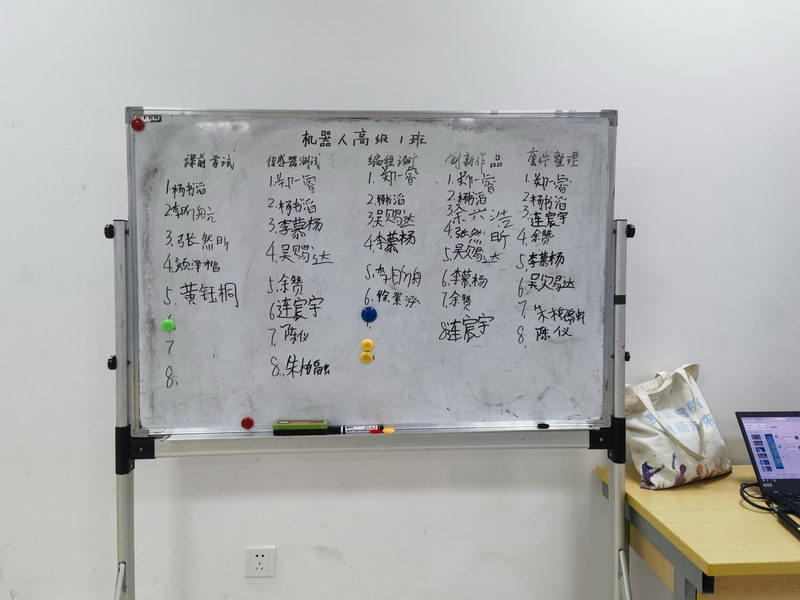 机器人高级1班
课前考试
1杨书滔
2李
3.张然昕
4.颜泽楷
5.黄钰桐
7
8.
传感器测试
1.郑一睿
2.杨书滔
3.李慕杨
4.吴赐达
5.余赞
6连宸宇
7.陈仪
8.朱柏融
编程
1.郑一睿
2.杨书滔
3吴赐达
4李慕杨
5.李
6.徐
创新作品
1.郑一睿
2.杨书滔
3.余
4.张然昕
5.吴赐达
6.李慕杨
7.余赞
8连宸宇
套件整理
1.郑一睿
2.杨书滔
3.连宸宇
4.余赞
5.李慕杨
6.吴赐达
7.朱柏融
8.陈仪